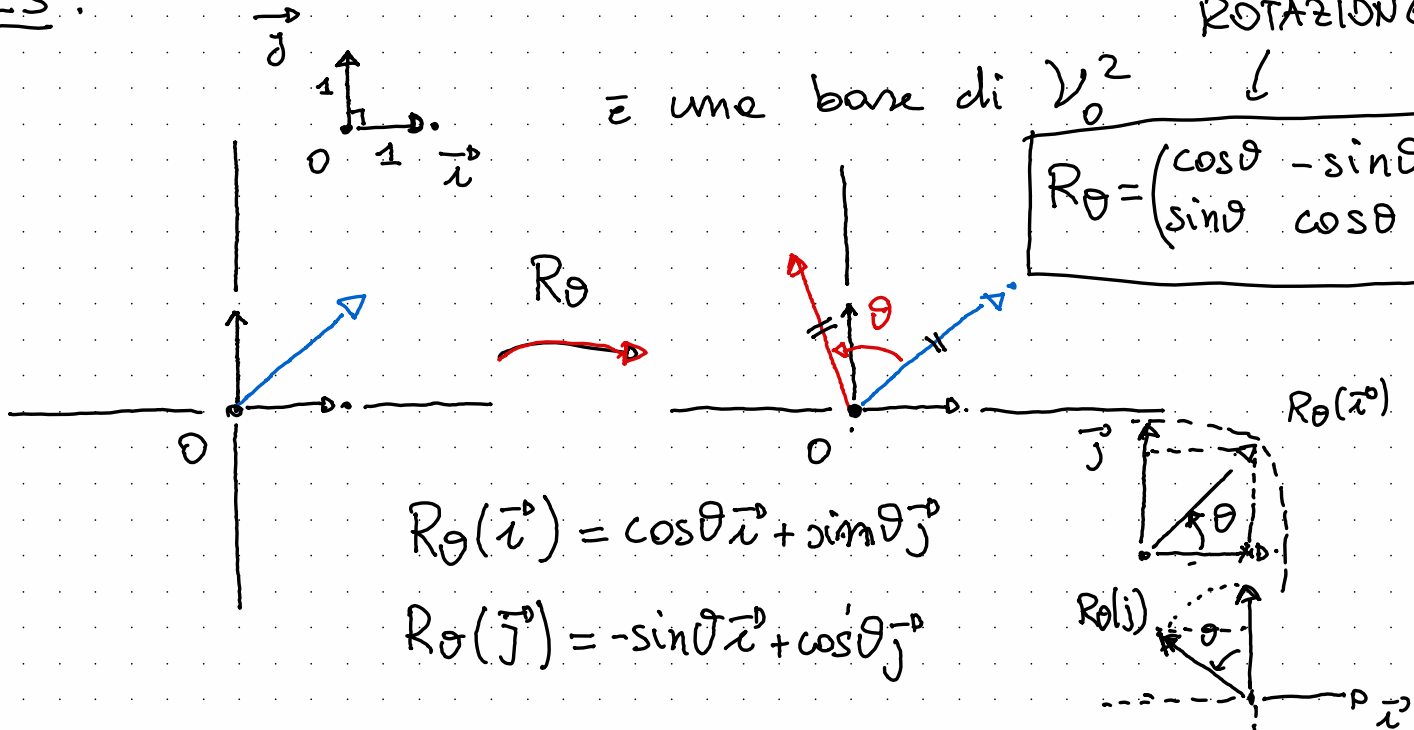 ES.
ROTAZIONE
j⃗
1
O 1 i⃗
È una base di V₀²
R_θ = (cosθ -sinθ
sinθ cosθ
R_θ
θ
O
O
R_θ(i⃗)
j⃗
θ
R_θ(i⃗) = cosθ i⃗ + sinθ j⃗
R_θ(j)
θ
R_θ(j⃗) = -sinθ i⃗ + cosθ j⃗
i⃗